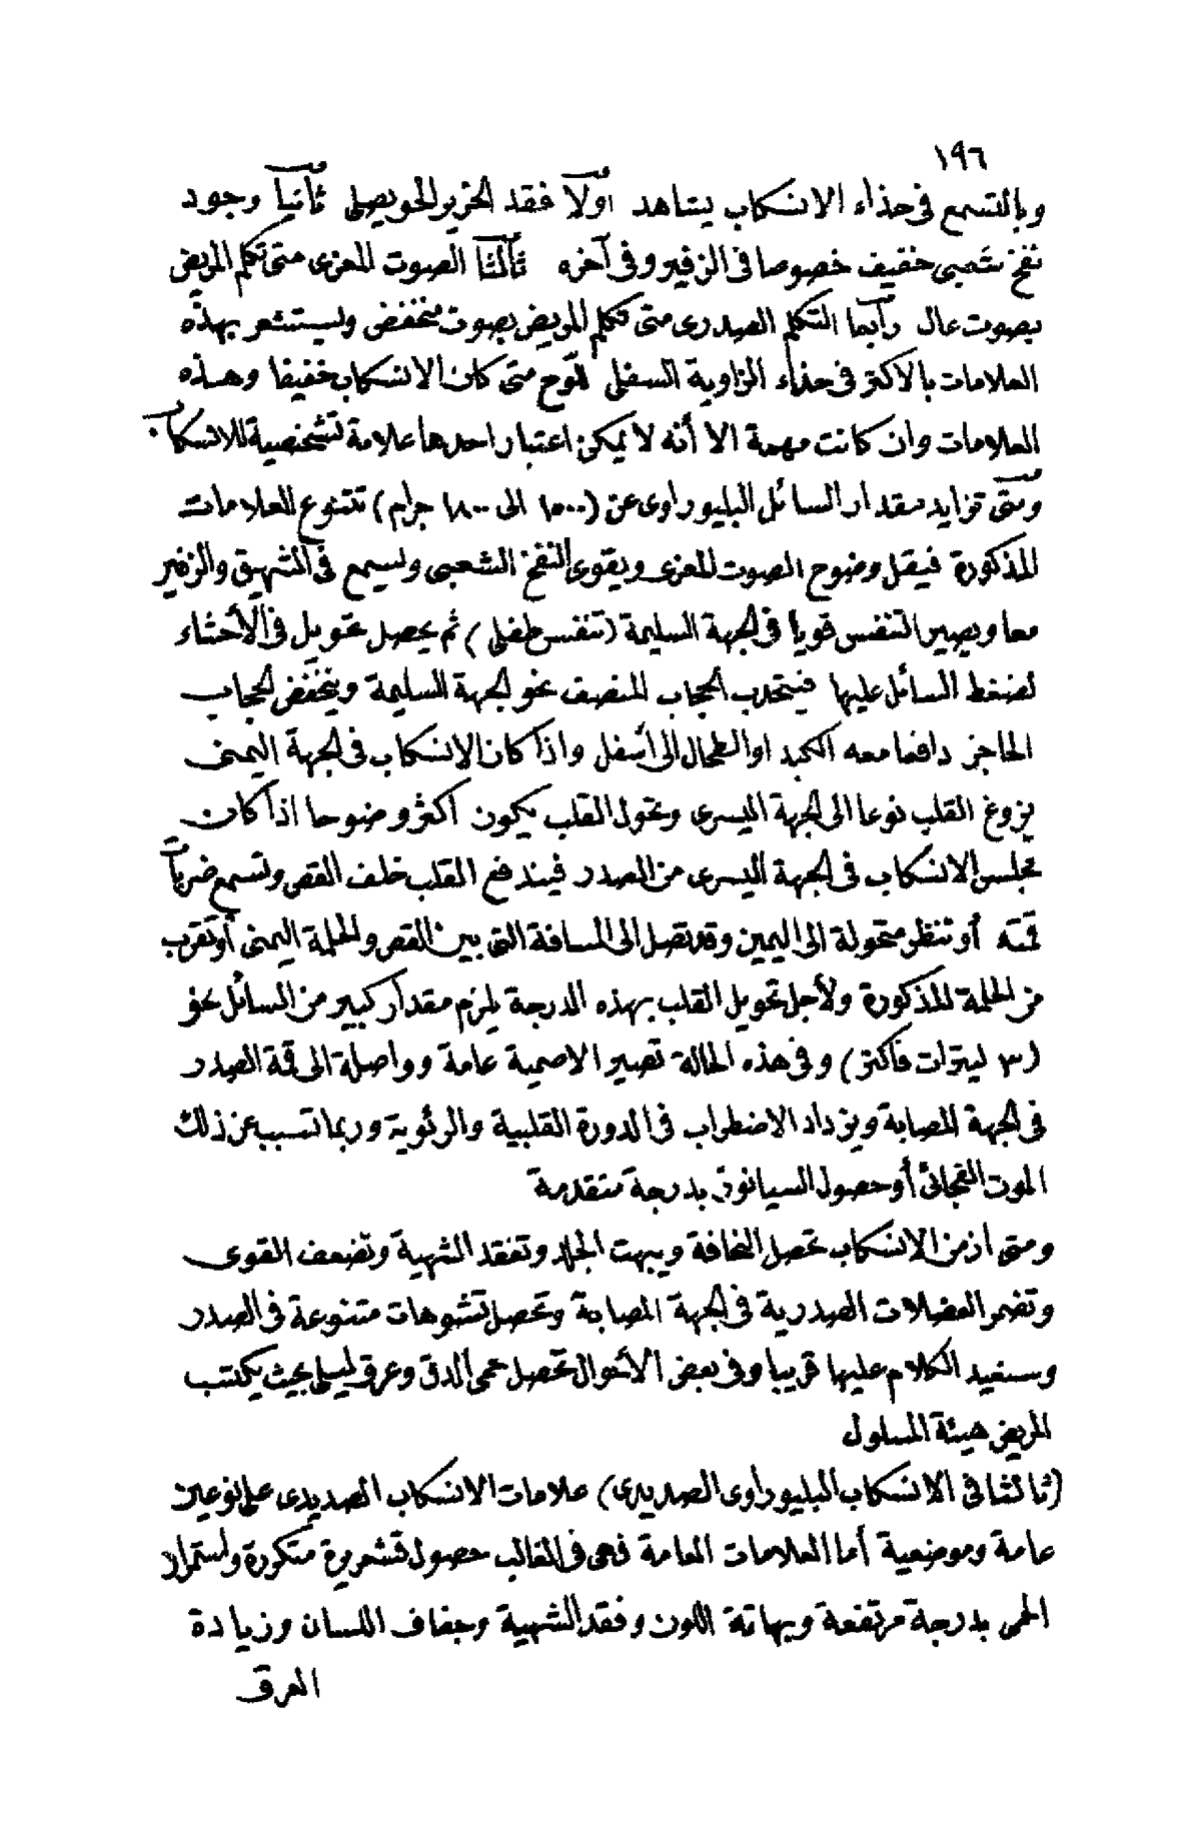 ١٩٦
وبالتسمع فى حذاء الانسكاب يشاهد اوّلا فقد الخرير الحويصلى ثانيا وجود
نفخ شعبى خفيف خصوصا فى الزفير وفى آخره ثالثا الصوت المعزى متى تكلم المريض
بصوت عال رابعا التكلم الصدرى متى تكلم المريض بصوت منخفض ويستشعر بهذه
العلامات بالاكثر فى حذاء الزاوية السفلى للّوح متى كان الانسكاب خفيفا وهذه
العلامات وان كانت مهمة الا أنه لا يمكن اعتبار احدها علامة تشخصية للانسكاب
ومتى تزايد مقدار السائل البليوراوى عن (١٥٠٠ الى ١٨٠٠ جرام) تتنوع العلامات
المذكورة فيقل وضوح الصوت المعزى ويقوى النفخ الشعبى ويسمع فى الشهيق والزفير
معا ويصير التنفس قويا فى الجهة السليمة (تنفس طفلى) ثم يحصل تحويل فى الأحشاء
لضغط السائل عليها فيتحدب الحجاب المنصف نحو الجهة السليمة وينخفض الحجاب
الحاجز دافعا معه الكبد او الطحال الى أسفل واذا كان الانسكاب فى الجهة اليمنى
يزوغ القلب نوعا الى الجهة اليسرى وتحول القلب يكون اكثر وضوحا اذا كان
مجلس الانسكاب فى الجهة اليسرى من الصدر فيندفع القلب خلف القص وتسمع ضربات
قمته أو تنظر متحولة الى اليمين وقد تصل الى المسافة التى بين القص والحلمة اليمنى أو تقرب
من الحلمة المذكورة ولأجل تحويل القلب بهذه الدرجة يلزم مقدار كبير من السائل نحو
(٣ ليترات فاكثر) وفى هذه الحالة تصير الاصمية عامة وواصلة الى قمة الصدر
فى الجهة المصابة ويزداد الاضطراب فى الدورة القلبية والرئوية وربما تسبب عن ذلك
الموت الفجائى أو حصول السيانوز بدرجة متقدمة
ومتى ازمن الانسكاب تحصل النحافة ويبهت الجلد وتفقد الشهية وتضعف القوى
وتضمر العضلات الصدرية فى الجهة المصابة وتحصل تشوهات متنوعة فى الصدر
وسنعيد الكلام عليها قريبا وفى بعض الأحوال تحصل حمى الدق وعرق ليلى بحيث يكتسب
المريض هيئة المسلول
(ثالثا فى الانسكاب البليوراوى الصديدى) علامات الانسكاب الصديدى على نوعين
عامة وموضعية أما العلامات العامة فهى فى الغالب حصول قشعريرة متكررة واستمرار
الحمى بدرجة مرتفعة وبهاتة اللون وفقد الشهية وجفاف اللسان وزيادة
العرق